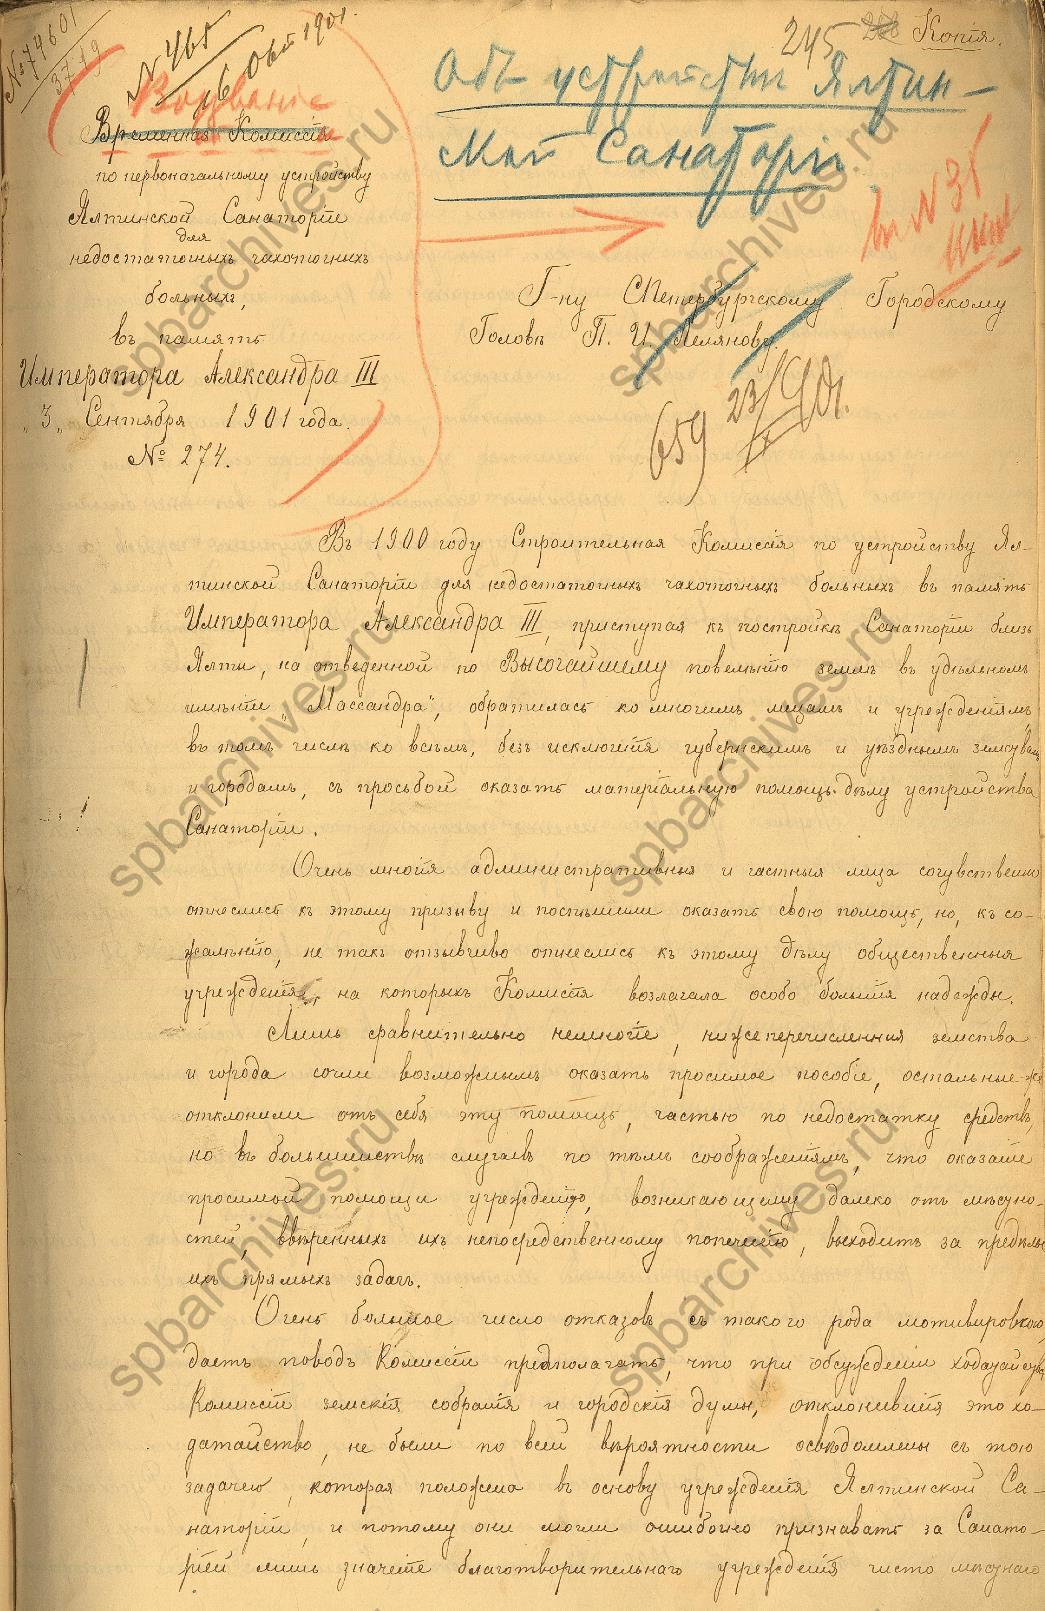 № 74601
3719
№ 465
16 Окт 1901.
245
Копія.
Воззваніе
Объ устройствѣ Ялтин-
ской Санаторіи
Временная Комиссія
по первоначальному устройству
Ялтинской Санаторіи
для
недостаточныхъ чахоточныхъ
больныхъ,
въ память
Императора Александра III
„3„ Сентября 1901 года.
№ 274.
№ 35
Г-ну СПетербургскому Городскому
Головѣ П. И. Лелянову.
659 23/X 901.
Въ 1900 году Строительная Комиссія по устройству Ял-
тинской Санаторіи для недостаточныхъ чахоточныхъ больныхъ въ память
Императора Александра III, приступая къ постройкѣ Санаторіи близь
Ялты, на отведенной по Высочайшему повелѣнію землѣ въ удѣльномъ
имѣніи „Массандра“, обратилась ко многимъ лицамъ и учрежденіямъ
въ томъ числѣ ко всѣмъ, безъ исключенія губернскимъ и уѣзднымъ земствамъ
и городамъ, съ просьбой оказать матеріальную помощь дѣлу устройства
Санаторіи.
Очень многія административныя и частныя лица сочувственно
отнеслись къ этому призыву и поспѣшили оказать свою помощь, но, къ со-
жалѣнію, не такъ отзывчиво отнеслись къ этому дѣлу общественныя
учрежденія, на которыхъ Комиссія возлагала особо большія надежды.
Лишь сравнительно немногіе, нижеперечисленныя земства
и города сочли возможнымъ оказать просимое пособіе, остальные-же
отклонили отъ себя эту помощь, частью по недостатку средствъ,
но въ большинствѣ случаевъ по тѣмъ соображеніямъ, что оказаніе
просимой помощи учрежденію, возникающему далеко отъ мѣстно-
стей, ввѣренныхъ ихъ непосредственному попеченію, выходитъ за предѣлы
ихъ прямыхъ задачъ.
Очень большое число отказовъ съ такого рода мотивировкою,
даетъ поводъ Комиссіи предполагать, что при обсужденіи ходатайства
Комиссіи земскія собранія и городскія думы, отклонившія это хо-
датайство, не были по всей вѣроятности освѣдомлены съ тою
задачею, которая положена въ основу учрежденія Ялтинской Са-
наторіи, и потому они могли ошибочно признавать за Санато-
ріей лишь значеніе благотворительнаго учрежденія чисто мѣстнаго
spbarchives.ru
spbarchives.ru
spbarchives.ru
spbarchives.ru
spbarchives.ru
spbarchives.ru